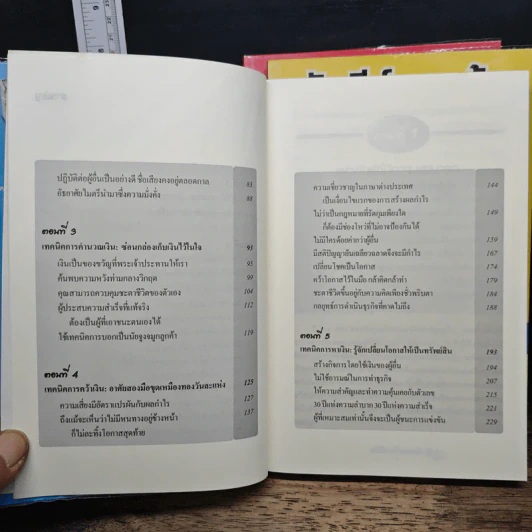 ปฏิบัติต่อผู้อื่นเป็นอย่างดี ชื่อเสียงคงอยู่ตลอดกาล 83
อัธยาศัยไมตรีนำมาซึ่งความมั่งคั่ง 88
ตอนที่ 3
เทคนิคการคำนวณเงิน: ซ่อนกล่องเก็บเงินไว้ในใจ 93
เงินเป็นของขวัญที่พระเจ้าประทานให้เรา 95
ค้นพบความหวังท่ามกลางวิกฤต 99
คุณสามารถควบคุมชะตาชีวิตของตัวเอง 104
ผู้ประสบความสำเร็จที่แท้จริง 112
ต้องเป็นผู้ที่เอาชนะตนเองได้
ใช้เทคนิคการบอกเป็นนัยจูงจมูกลูกค้า 119
ตอนที่ 4
เทคนิคการคว้าเงิน: อาศัยสองมือขุดเหมืองทองวันละแท่ง 125
ความเสี่ยงมีอัตราแปรผันกับผลกำไร 127
ถึงแม้จะเห็นว่าไม่มีหนทางอยู่ข้างหน้า 137
ก็ไม่ละทิ้งโอกาสสุดท้าย
ความเชี่ยวชาญในภาษาต่างประเทศ 144
เป็นเงื่อนไขแรกของการสร้างผลกำไร
ไม่ว่าเป็นกฎหมายที่รัดกุมเพียงใด 149
ก็ต้องมีช่องโหว่ที่ไม่อาจป้องกันได้
ไม่มีใครด้อยค่ากว่าผู้อื่น 159
มีสติปัญญาอันเฉลียวฉลาดจึงจะมีกำไร 167
เปลี่ยนโชคเป็นโอกาส 174
คว้าโอกาสไว้ในมือ กล้าคิดกล้าทำ 180
ชะตาชีวิตขึ้นอยู่กับความคิดเพียงชั่วพริบตา 184
กลยุทธ์การดำเนินธุรกิจที่คาดไม่ถึง 187
ตอนที่ 5
เทคนิคการหาเงิน: รู้จักเปลี่ยนโอกาสให้เป็นทรัพย์สิน 193
สร้างกิจการโดยใช้เงินของผู้อื่น 194
ไม่ใช้อารมณ์ในการทำธุรกิจ 207
ให้ความสำคัญและทำความคุ้นเคยกับตัวเลข 215
30 ปีแห่งความลำบาก 30 ปีแห่งความสำเร็จ 221
ผู้ที่เหมาะสมเท่านั้นจึงจะเป็นผู้ชนะการแข่งขัน 229